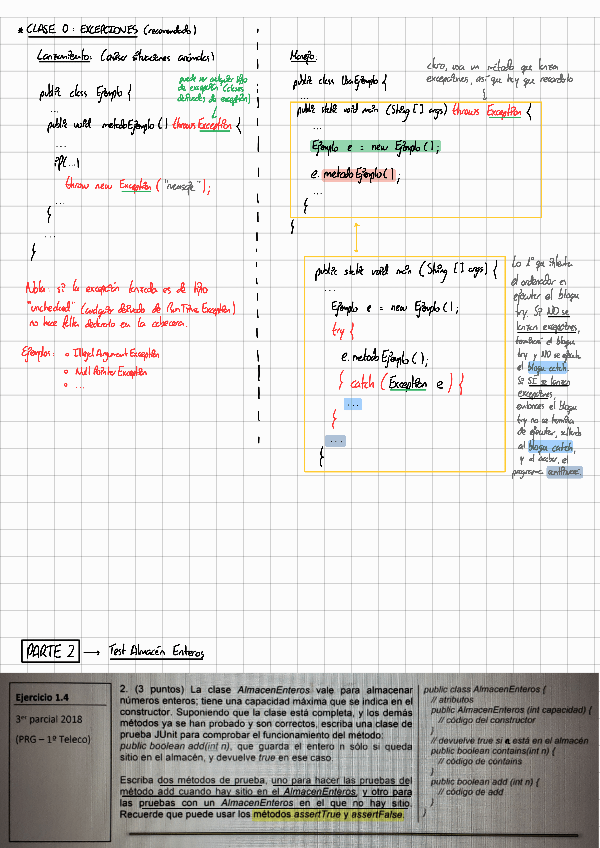 * CLASE 0: EXCEPCIONES (recomendado)
Lanzamiento: (avisar situaciones anómalas)
puede ser cualquier tipo
de excepción (clases
derivadas de exception)
public class Ejemplo {
...
public void metodoEjemplo() throws Exception {
...
if(...)
throw new Exception ("mensaje");
...
}
...
}
Nota: si la excepción lanzada es de tipo
"unchecked" (cualquier derivado de RunTime Exception)
no hace falta declararlo en la cabecera.
Ejemplos: o Illegal Argument Exception
o Null Pointer Exception
o ...
Manejo:
claro, usa un método que lanza
excepciones, así que hay que
public class UsaEjemplo {
...
public static void main (String [] args) throws Exception {
...
Ejemplo e = new Ejemplo();
e. metodoEjemplo();
...
}
}
public static void main (String [] args) {
...
Ejemplo e = new Ejemplo();
try {
e. metodoEjemplo();
} catch (Exception e) {
...
}
...
}
Lo 1º que intenta
el ordenador es
ejecutar el bloque
try. Si NO se
lanzan excepciones,
terminará el bloque
try y NO se ejecuta
el bloque catch.
Si SÍ se lanzan
excepciones,
entonces el bloque
try no se termina
de ejecutar, saltando
al bloque catch,
y al acabar, el
programa continúa.
PARTE 2 → Test Almacén Enteros
Ejercicio 1.4
3er parcial 2018
(PRG – 1º Teleco)
2. (3 puntos) La clase AlmacenEnteros vale para almacenar
números enteros; tiene una capacidad máxima que se indica en el
constructor. Suponiendo que la clase está completa, y los demás
métodos ya se han probado y son correctos, escriba una clase de
prueba JUnit para comprobar el funcionamiento del método:
public boolean add(int n), que guarda el entero n sólo si queda
sitio en el almacén, y devuelve true en ese caso.
Escriba dos métodos de prueba, uno para hacer las pruebas del
método add cuando hay sitio en el AlmacenEnteros, y otro para
las pruebas con un AlmacenEnteros en el que no hay sitio.
Recuerde que puede usar los métodos assertTrue y assertFalse.
public class AlmacenEnteros {
// atributos
public AlmacenEnteros (int capacidad) {
// código del constructor
}
// devuelve true si n está en el almacén
public boolean contains(int n) {
// código de contains
}
public boolean add (int n) {
// código de add
}
}